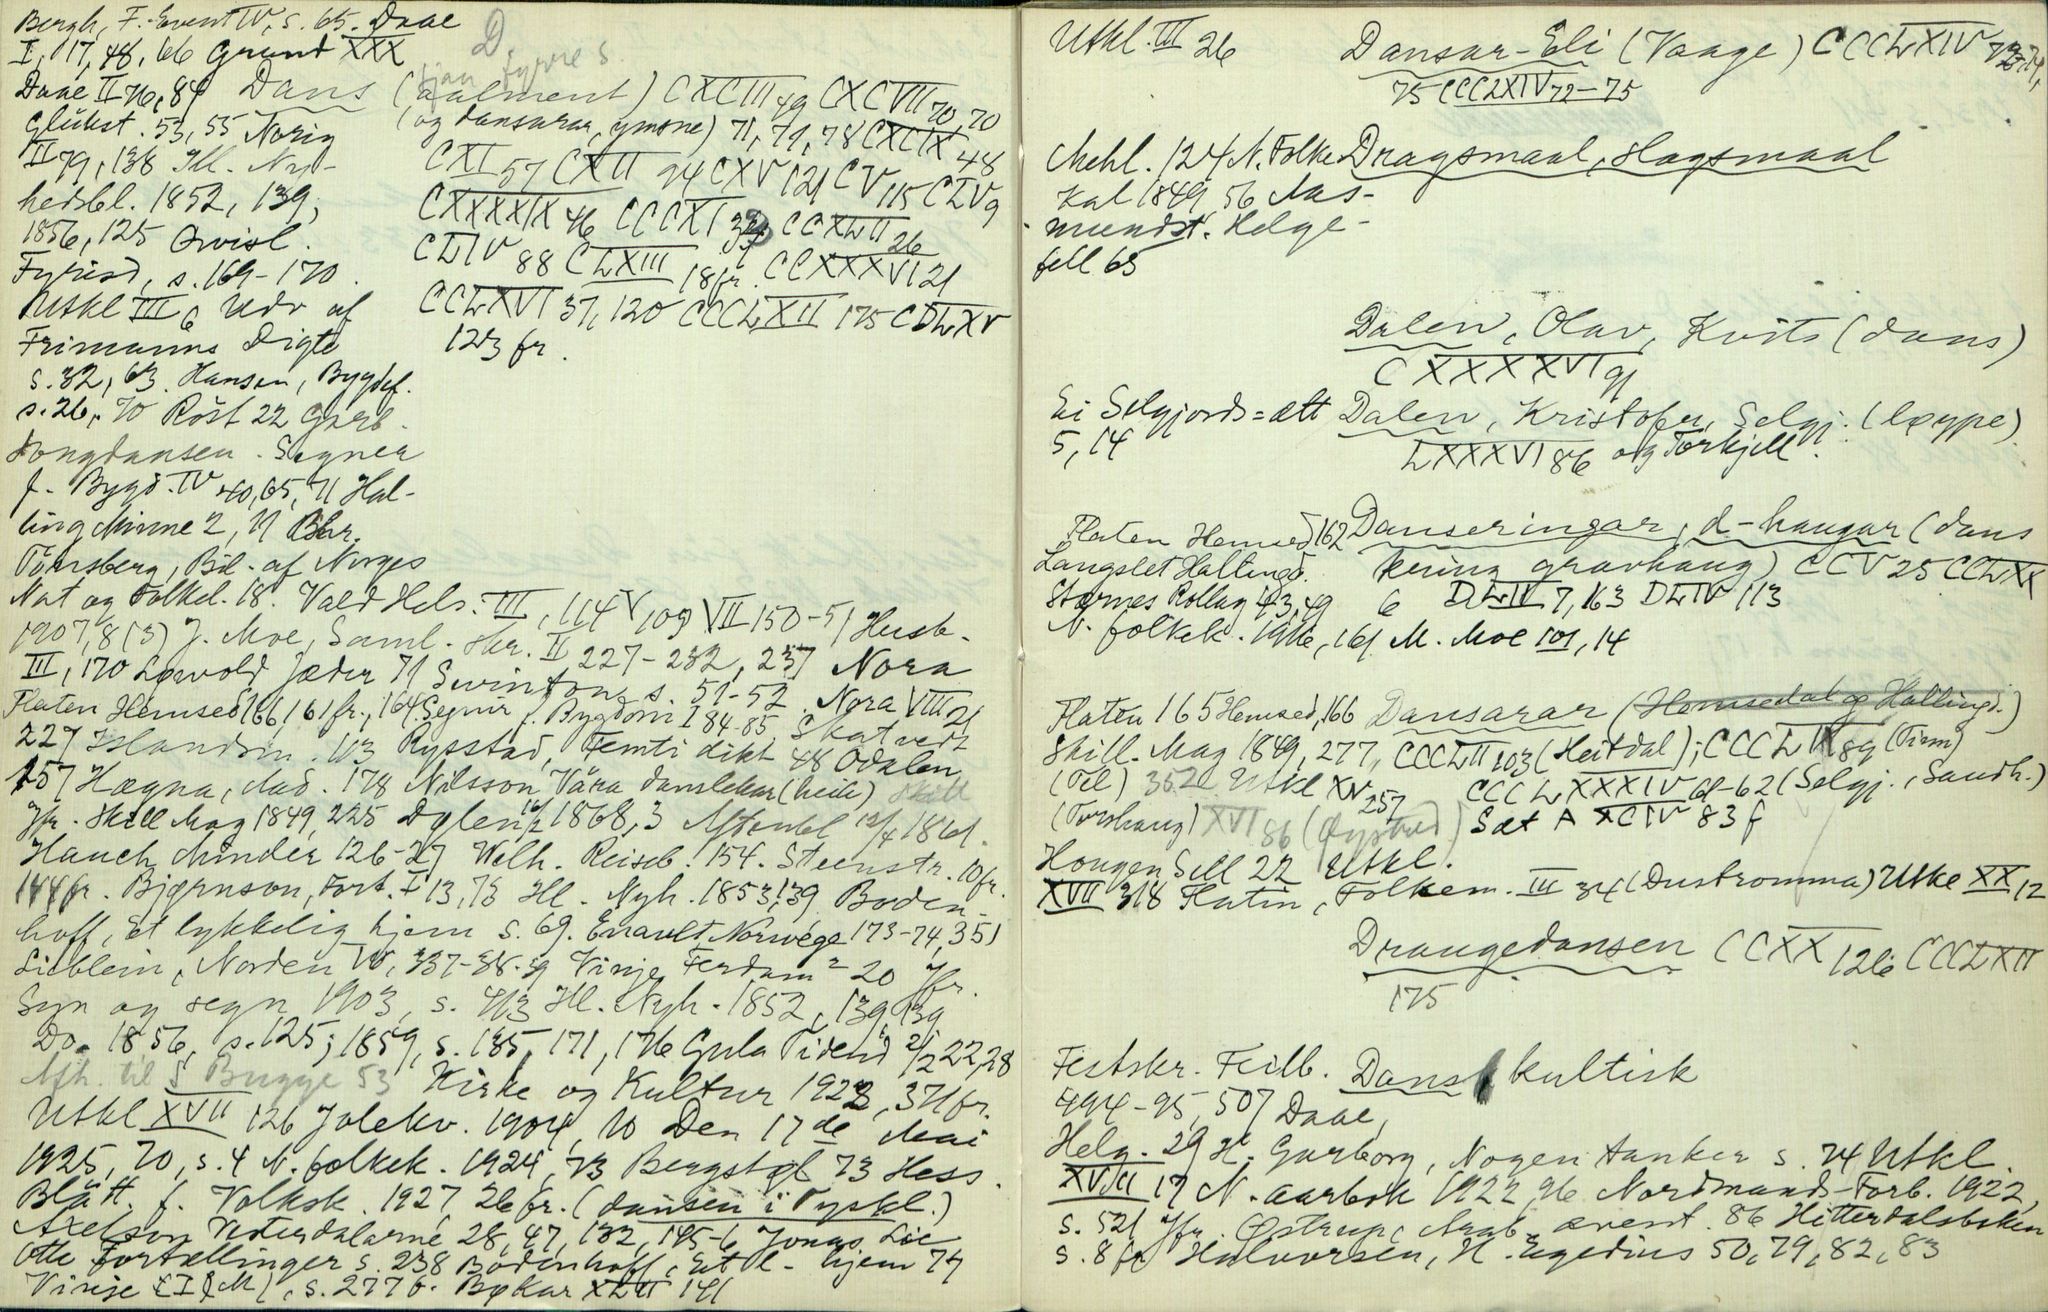 Bergh, F.-Event IV, s. 65. Daae
I, 117, 48, 66 Grund XXX
Daae II 76, 84 Dans (aalment) CXCIII 49 CXCVII 70, 70
Glükst. 53, 55 Norig (og dansarar, ymsne) 71, 79, 78 CXCIX 48
II 79, 138 Ill. Ny- CXI 57 CXII 94 CXV 121 CV 115 CLV 9
hedsbl. 1852, 139, CXXXXIX 46 CCCXI CCXLII 26
1856, 125 Qvisl. CLIV 88 CLXIII 18 fr. CCXXXVI 21
Fyrisd, s. 169-170. CCLXVI 37, 120 CCCLXII 175 CDLXV
Utkl III 6 Udv af 123 fr.
Frimanns Digte
s. 32, 63. Hansen, Bygdef.
s. 26, 70 Röst 22 Garb.
Songdansen. Segner
f. Bygd. IV 40, 65, 71 Hal-
ling Minne 2, 11 Bhr.
Tönsberg, Bil. af Norges
Nat og Folkel. 18. Vald Hels. III, 114 V 109 VII 150-51 Husk-
1907, 8 (3) J. Moe, Saml. skr. II 227-232, 237 Nora
III, 170 Løvold Jæder 71 Swinton s. 51-52. Nora VIII 21
Flaten Hemsed 166, 161 fr., 164. Segner f. Bygdom I 84-85. Skatvedt
227 Islandsm. 113 Rysstad, Femti dikt 48 Odalen
157 Hægna, Aad. 178 Nilsson Våra danslekar (heile)
Jfr. Skill Mag 1849, 225 Dølen 1868, 3 Aftenbl 12/4 1861.
Hauch Minder 126-27 Welh. Reiseb. 154. Steenstr. 10 fr.
144 fr. Bjørnson, Fort. I 13, 75 Ill. Nyh. 1853, 139 Boden-
hoff, Et lykkelig hjem s. 69. Enault Norvege 173-74, 351
Lieblein, Norden IV, 337-38-39 Vinje Ferdam 2 20 Jfr.
Syn og segn 1903, s. 413 Ill. Nyh. 1852, 139, 139
Do. 1856, s. 125; 1859, s. 135, 171, 176 Gula Tidend 2/2 22, 28
Afh. til S Bugge 53 Kirke og Kultur 1922, 371 fr.
Utkl XVII 126 Jolekv. 1904, 10 Den 17de Mai
1925, 70, s. 4 N. folkek. 1924, 73 Bergstøl 73 Hess.
Blätt. f. Volksk. 1927, 26 fr. (dansen i Tyskl.)
Axelson Vesterdalarne 28, 47, 132, 145-6 Jonas Lie
Otte Fortællinger s. 238 Bodenhoff, Et l. hjem 77
Vinje s. 277 Bøkar XLII 141
Utkl. III 26 Dansar-Eli (Vaage) CCCLXIV 72-74,
75 CCCLXIV 72-75
Mehl. 124 N. Folke Dragsmaal, Hagsmaal
Kal 1849 56 Aas-
mundst. Helge-
fell 65
Dalen, Olav, Kvits (dans)
CXXXXVI 91
Ei Selgjords=ætt Dalen, Kristofer, Selgj. (løype)
5, 14 LXXXVI 86 og Torkjell.
Flaten Hemsed 162 Danseringar, d-haugar (dans
Langslet Hallingd. kring gravhaug) CCV 25 CCLXX
Stærnes Rollag 43, 49 6 DLIV 7, 163 DLIV 113
N. folkek. 1916, 161 M. Moe 101, 14
Flaten 165 Hemsed, 166 Dansarar (Hemsedal og Hallingd.)
Skill. Mag 1849, 277, CCCLII 103 (Heitdal); CCCLIX 89 (Tinn)
(Tel) 352 Utkl XV 257 CCCLXXXIV 61-62 (Selgj., Sandh.)
(Torshaug) XVI 86 (Øystad) Sæt A XCIV 83 f
Hougen Sill 22 Utkl.
XVII 318 Flatin, Folkem. III 34 (Dustromma) Utkl XX 12
Draugedansen CCXX 126 CCCLXII
175
Festskr. Feilb. Dans kultisk
494-95, 507 Daae,
Helg. 29 H. Garborg, Nogen tanker s. 74 Utkl.
XVIII 17 N. aarbok 1922, 96 Nordmands-Forb. 1922,
s. 521 Jfr. Østrup, Arab. ævent. 86 Hitterdalsboken
s. 8 fr Halvorsen, H. Egedius 50, 79, 82, 83